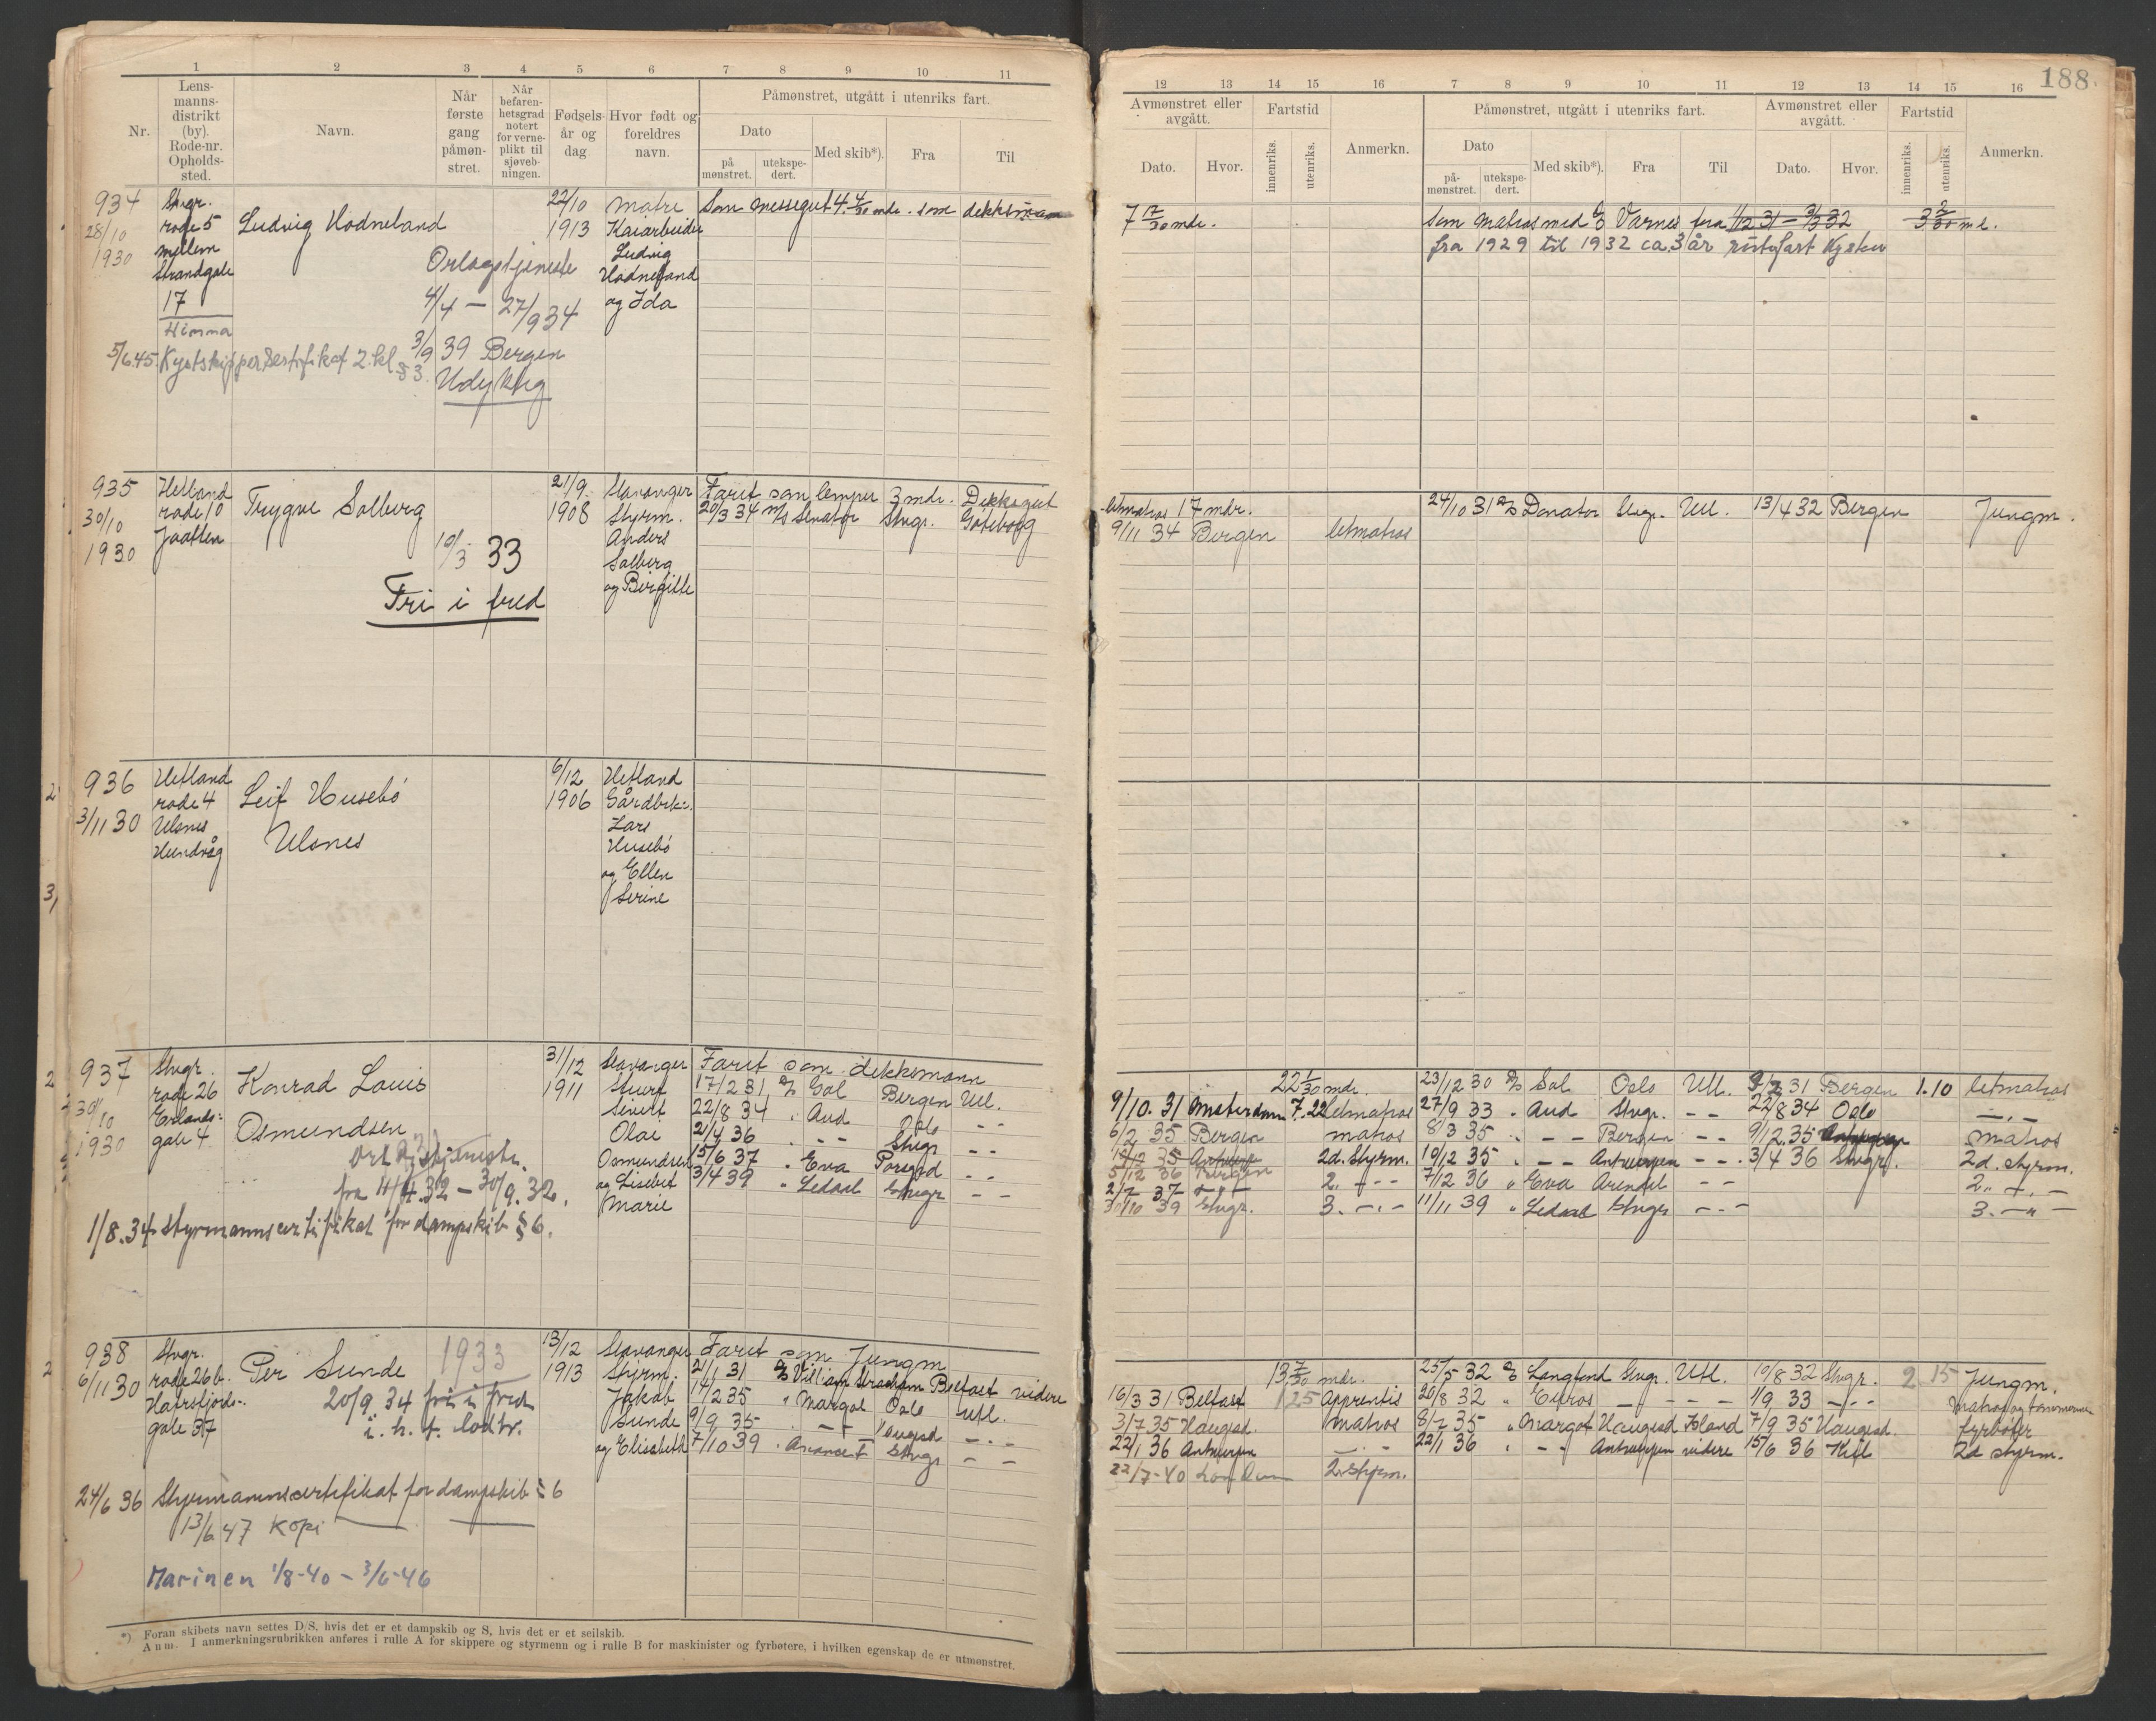 188.
1 2 3 4 5 6 7 8 9 10 11
Nr.
Lens-
manns-
distrikt
(by).
Rode-nr.
Opholds-
sted.
Navn.
Når
første
gang
påmøn-
stret.
Når
befaren-
hetsgrad
notert
for verne-
plikt til
sjøveb-
ningen.
Fødsels-
år og
dag
Hvor født og
foreldres
navn.
Påmønstret, utgått i utenriks fart.
Dato
på
mønstret.
utekspe-
dert.
Med skib*).
Fra
Til
12 13 14 15 16 7 8 9 10 11 12 13 14 15 16
Avmønstret eller
avgått.
Dato.
Hvor.
Fartstid
innenriks.
utenriks.
Anmerkn.
Påmønstret, utgått i utenriks fart.
Dato
på-
mønstret.
utekspe-
dert.
Med skib*).
Fra
Til
Avmønstret eller
avgått.
Dato.
Hvor.
Fartstid
innenriks.
utenriks.
Anmerkn.
934
28/10
1930
Stvgr.
rode 5
mellem
Strandgate
17
Hinna
Ludvig Hodneland
Orlogstjeneste
4/4 – 27/9 34
22/10
1913
Matre
Kaiarbeider
Ludvig
Hodneland
og Ida
Som messegut 4. 4/30 mdr. som dekksmann
7 17/30 mdr.
Som matros med Varnes fra 1/12 31 – 3/3 32 3 2/30 m
fra 1929 til 1932 ca. 3 år
5/6 45. Kystskippersertifikat 2. kl § 3.
3/9 39 Bergen
935
30/10
1930
Hetland
rode 10
Jaatten
Trygve Solberg
10/3 33
Fri i fred
21/9.
1908
Stavanger
Styrm.
Anders
Solberg
og Bergitte
Faret som lemper 3 mdr. Dekksgut
20/3 34 M/S Senator Stvgr. Gøteborg
letmatros 17 mdr.
9/11 34 Bergen letmatros
24/10 31 D/S Donator Stvgr. Utl. 13/4 32 Bergen Jungm.
936
3/11 30
Hetland
rode 4
Ulsnes
Hundvåg
Leif Husebö
Ulsnes
6/12
1906
Hetland
Gårdbr.
Lars
Husebö
og Ellen
Serine
937
30/10
1930
Stvgr.
rode 26
Erlands-
gate 4
Konrad Louis
Osmundsen
fra 11/4 32 – 30/9. 32.
1/8. 34 Styrmannscertifikat for dampskib § 6.
31/12
1911
Stavanger
Stuert
Sivert
Olai
Osmundsen
og Lisebet
Marie
Faret som dekksmann
17/2 31 D/S Sol Bergen Utl.
22/8 34 " Aud Oslo – –
2/4 36 " – – Stvgr – –
15/6 37 " Eva Porsgrd – –
3/4 39 " Ledaal Stvgr – –
22 1/30 mdr.
9/10. 31 Amsterdam 7. 22 letmatros
6/2 35 Bergen matros
Antwerpen 2d. Styrm.
5/12 36 Bergen 2. – – –
2/7 37 – – –
30/10 39 Stvgr. 3. – – –
23/12 30 D/S Sol Oslo Utl. 31 Bergen 1.10 letmatros
27/9 33 " Aud Stvgr. – – 22/8 34 Oslo – " –
8/3 35 " – – Bergen – – 9/12. 35 Antwerpen matros
10/12 35 " – – Antwerpen – – 3/4 36 Stvgr. 2d. styrm.
7/12 36 " Eva Arendal – – 2. – " –
11/11 39 " Ledaal Stvgr – – 3. – " –
938
6/11 30
Stvgr.
rode 26b.
Hafrsfjords-
gate 37
Per Sunde
1933
20/9. 34 fri i fred
i. h. t.
13/12
1913
Stavanger
Styrm.
Jakob
Sunde
og Elisabeth
Faret som Jungm
2/1 31 D/S William Strachan Belfast videre
14/2 35 " Margot Oslo Utl.
9/9 35 " – – Haugesd – –
7/10 39 " Stvgr – –
13 7/30 mdr.
16/3 31 Belfast 1 25 Apprentis
3/7 35 Haugesd. Matros
22/1 36 Antwerpen – " –
22/7-40 London 2. styrm.
25/5 32 D/S Langfond Stvgr. Utl. 10/8 32 Stvgr. 2 15 Jungm.
20/8 32 " Euros – – – – 1/9 33 – " –
8/7 35 " Margot Haugesd Island 7/9 35 Haugesd. fyrbøter
22/1 36 " – – Antwerpen videre 15/6 36 Kiel 2d styrm.
24/6 36 Styrmannscertifikat for dampskib § 6
13/6 47 Kopi
Marinen 1/8-40 – 3/6-46
*) Foran skibets navn settes D/S, hvis det er et dampskib og S, hvis det er et seilskib.
Anm. I anmerkningsrubrikken anføres i rulle A for skippere og styrmenn og i rulle B for maskinister og fyrbøtere, i hvilken egenskap de er utmønstret.